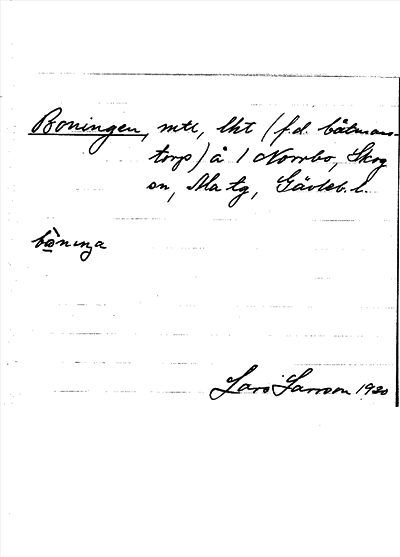 Boningen, mtl, lht (f.d. båtmans-
torp) å 1 Norrbo, Skog
sn, Ma tg, Gävleb. l.
bòninga
Lars Larsson 1930